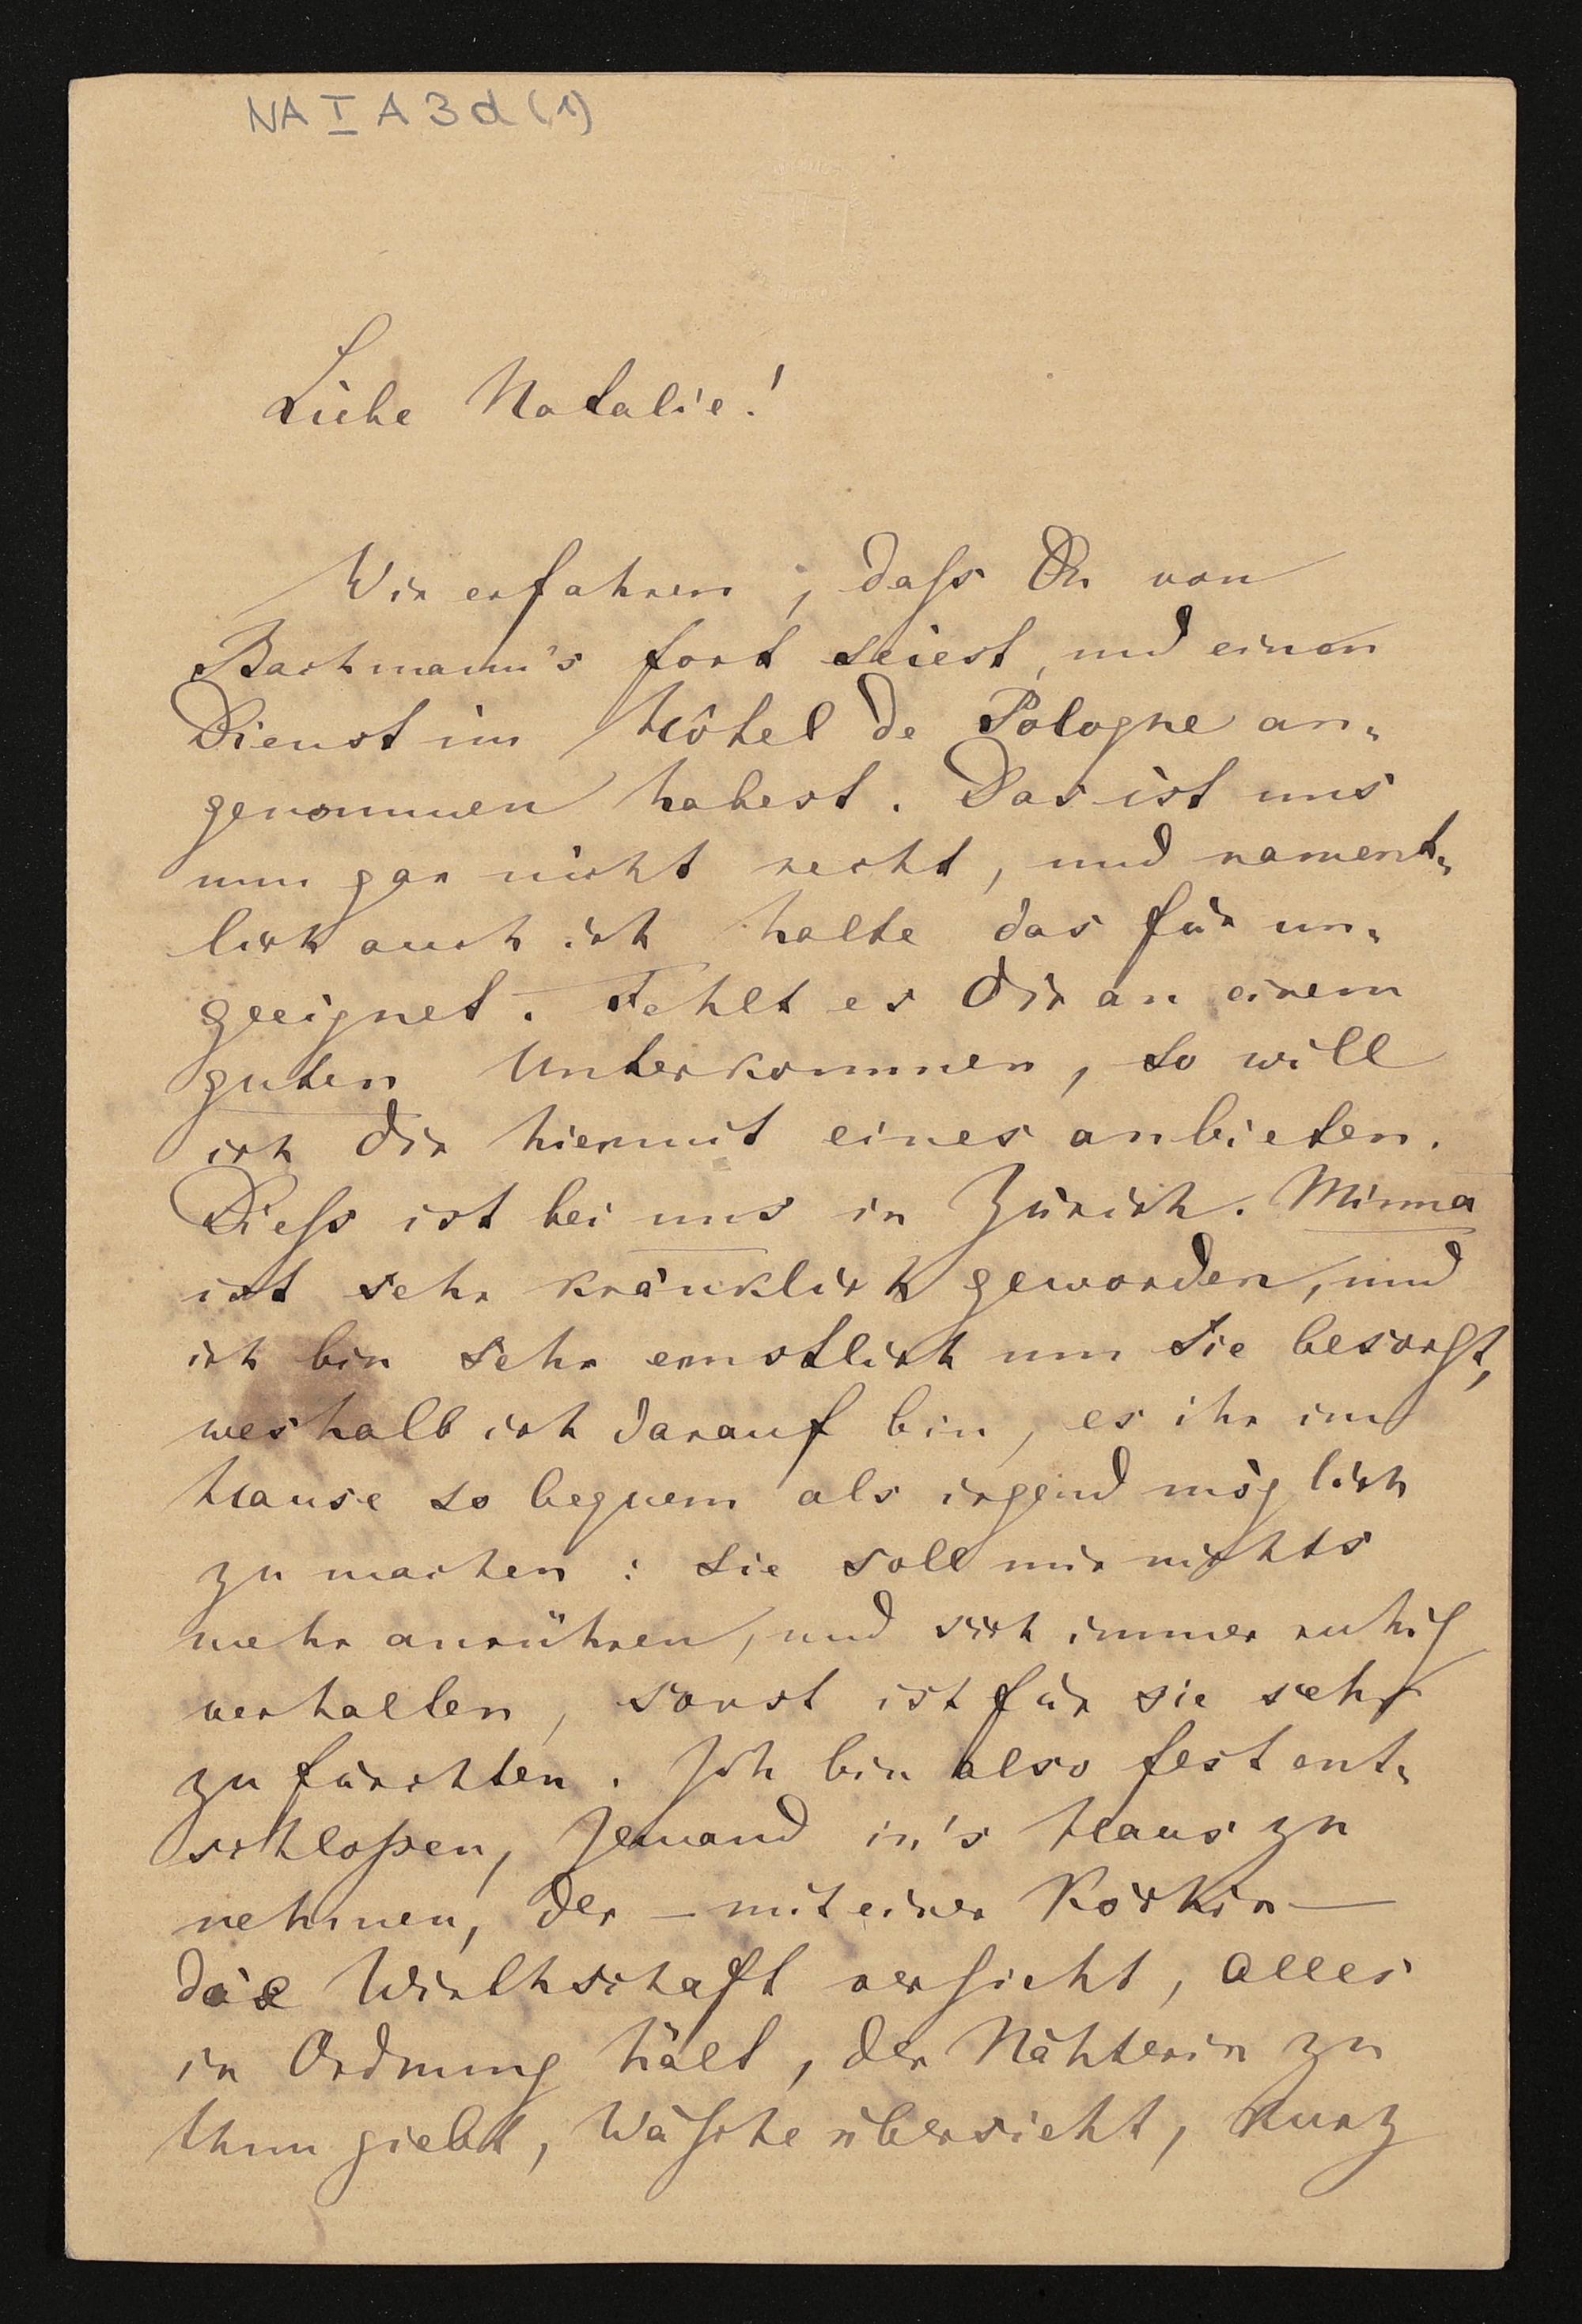 NA I A 3 d (1)
Liebe Natalie!
Wir erfahren, daß Du von
Bachmann's fort seiest, und einen
Dienst im Hôtel de Pologne an-
genommen habest. Das ist uns
nun gar nicht recht, und nament-
lich auch ich halte das für un-
geeignet. Fehlt es Dir an einem
guten Unterkommen, so will
ich Dir hiermit eines anbieten.
Dieß ist bei uns in Zürich. Minna
ist sehr kränklich geworden, und
ich bin sehr ernstlich um sie besorgt,
weshalb ich darauf bin, es ihr im
Hause so bequem als irgend möglich
zu machen: sie soll mir nichts
mehr anrühren, und sich immer ruhig
verhalten, sonst ist für sie sehr
zu fürchten. Ich bin also fest ent-
schloßen, Jemand in's Haus zu
nehmen, der – mit einer Köchin –
die Wirthschaft versieht, alles
in Ordnung hält, der Nähterin zu
thun giebt, Wäsche übersieht, kurz